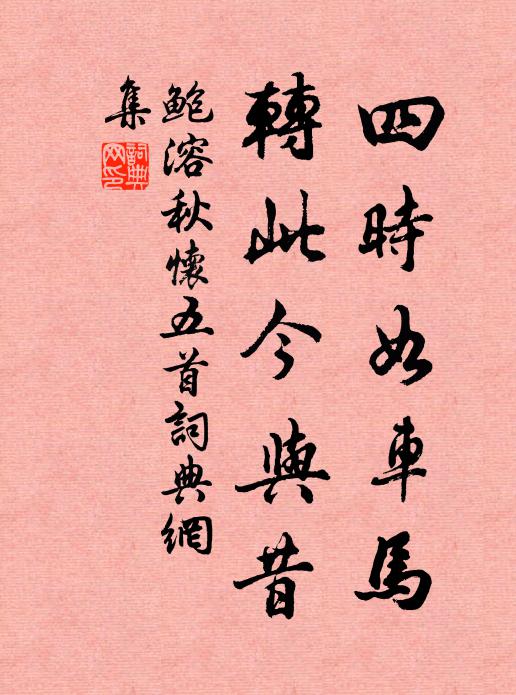 四時如車馬
轉此今與昔
鮑溶秋懷五首詞典網
集
詞典
网印